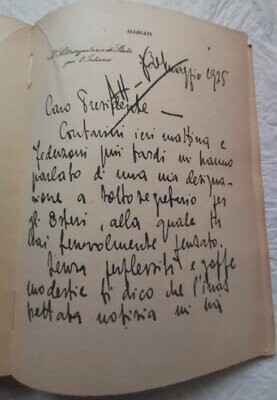 ALLEGATI
Il Sottosegretario di Stato
per l'Interno
Att.
6 maggio 1925
Caro Presidente –
Contarini ieri mattina e
Federzoni più tardi mi hanno
parlato di una mia designa-
zione a sottosegretario per
gli Esteri, alla quale tu
hai benevolmente pensato.
Senza perplessità e goffe
modestie ti dico che l'inas
pettata notizia mi ha